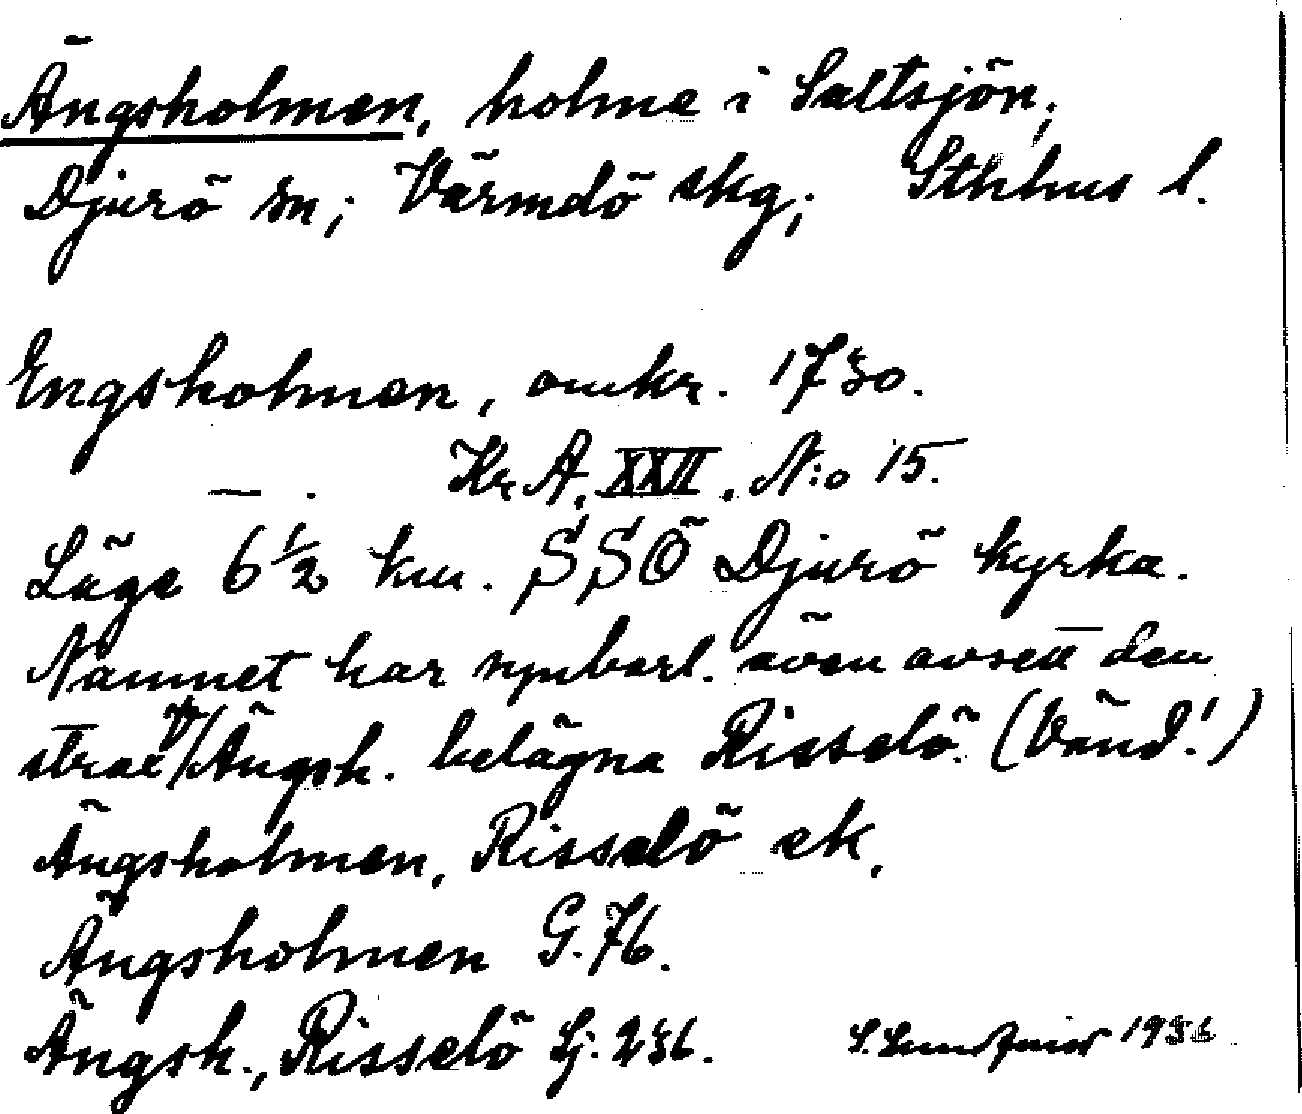 Ängsholmen, holme i Saltsjön;
Djurö sn; Värmdö skg; Sthlms l.
Engsholmen, omkr. 1730.
— . Kr. A. XXII. N:o 15.
Läge 6 1/2 km. SSÖ Djurö kyrka.
Namnet har synbarl. även avsett den
strax V/Ängsh. belägna Risselö. (Vänd!)
Ängsholmen, Risselö ek.
Ängsholmen G.76.
Ängsh., Risselö Sj. 236. 1936